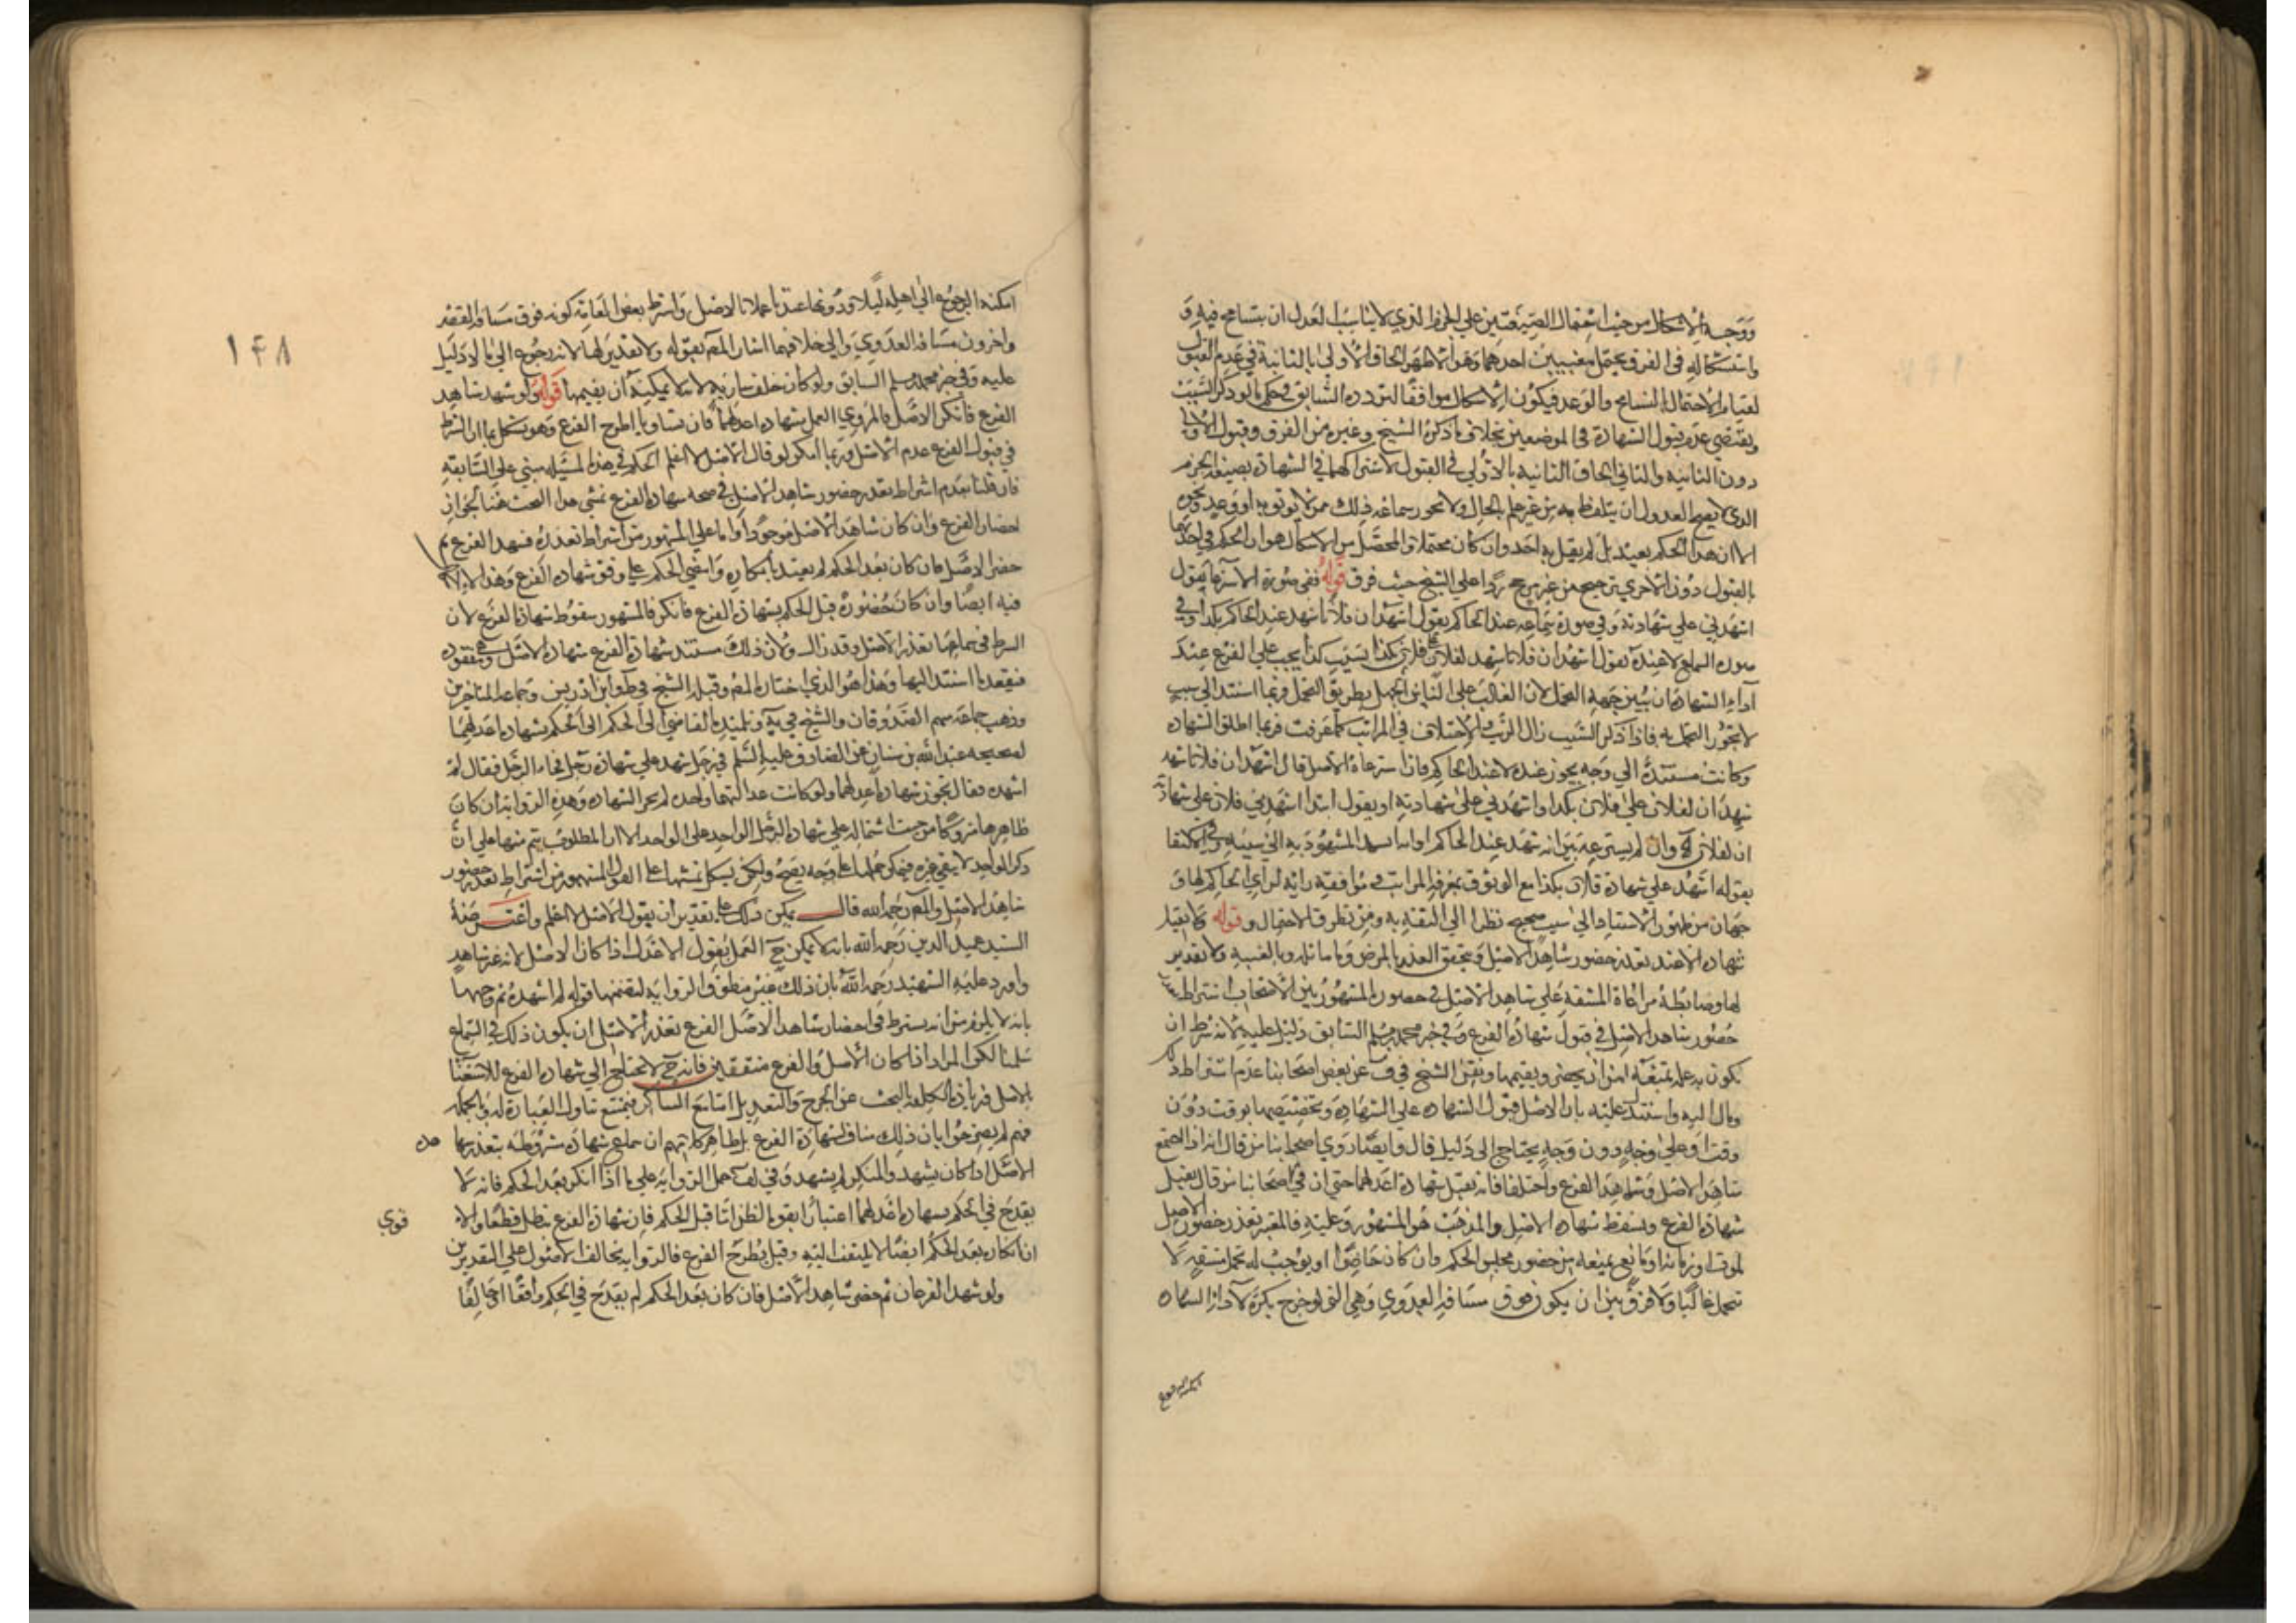 ووجه الاشكال من حيث استعمال الصيغتين على الجزم الذي لا يناسب العدل ان يتسامح فيه و
واستشكاله في الفرق يحتمل احدهما وهو الاظهر الحاق الاولى بالثانية في عدم القبول
لقيام الاحتمال التسامح والوعد فيكون الاشكال موافقا لتردده السابق في حكم ما لو ذكر السبب
ويقتضي عدم قبول الشهادة في الموضعين بخلاف ما ذكره الشيخ وغيره من الفرق وقبول الاولى
دون الثانية والثاني الحاق الثانية بالاولى في القبول لاشتراكهما في الشهادة بصيغة الجزم
الذي لا يصح للعدول ان يتلفظ به من غير علم بالحال ولا يجوز سماعه ذلك ممن لا يوثق به او وعيد ونحوه
الا ان هذا الحكم بعيد بل لم يقل به احد وان كان محتملا والمحصل من الاشكال هو ان الحكم في احديهما
بالقبول دون الاخرى ترجيح من غير مرجح ردا على الشيخ حيث فرق قوله ففي صورة الاسترعاء يقول
اشهدني على شهادته وفي صورة سماعه عند الحاكم يقول اشهد ان فلانا شهد عند الحاكم بكذا وفي
صورة السماع لا عنده يقول اشهد ان فلانا شهد لفلان على فلان بكذا بسبب كذا يجب على الفرع عند
اداء الشهادة ان يبين جهة التحمل لان الغالب على الناس الجهل بطريق التحمل فربما استند الى سبب
لا يجوز التحمل به فاذا ذكر السبب زال الريب وللاختلاف في المراتب كما عرفت فربما اطلق الشهادة
وكانت مستندة الى وجه يجوز عنده لا عند الحاكم فاذا استرعاه الاصل قال اشهد ان فلانا شهد
شهد ان لفلان على فلان بكذا واشهدني على شهادته او يقول ابتدا اشهدني فلان على شهادته
ان لفلان وان لم يسترعه بين انه شهد عند الحاكم او اسند المشهود به الى سببه وفي الاكتفا
بقوله اشهد على شهادة فلان بكذا مع الوثوق بمعرفة المراتب وموافقة رايه لراي الحاكم لها و
جهان من ظهور الاستناد الى سبب صحيح نظرا الى الثقة به ومن تطرق الاحتمال وقوله ولا يقبل
شهادة الا عند تعذر حضور شاهد الاصل ويتحقق العذر بالمرض وما ماثله وبالغيبة ولا تقدير
لها وضابطه مراعاة المشقة على شاهد الاصل في حضوره المشهور بين الاصحاب اشتراط
حضور شاهد الاصل في قبول شهادة الفرع وفي خبر محمد بن مسلم السابق دليل عليه لانه شرط ان
يكون به علة تمنعه من ان يحضر ويقيمها ونقل الشيخ في ف عن بعض اصحابنا عدم اشتراط ذلك
ومال اليه واستند عليه بان الاصل قبول الشهادة على الشهادة وتخصيصها بوقت دون
وقت او على وجه دون وجه يحتاج الى دليل قال وايضا روى اصحابنا من قال انه اذا اجتمع
شاهد الاصل وشاهد الفرع واختلفا فانه تقبل شهادة اعدلهما حتى ان في اصحابنا من قال يقبل
شهادة الفرع ويسقط شهادة الاصل والمذهب هو المشهور وعليه فالمعتبر تعذر حضور الاصل
لموت او زمانة او مانع يمنعه من حضور مجلس الحكم وان كان حاضرا او يوجب له تحمل مشقة لا
تتحمل غالبا ولا فرق بين ان يكون فوق مسافة العدوى وهي التي لو خرج بكرة لاداء الشهادة
امكنه الرجوع
امكنه الرجوع الى اهله ليلا ودونها عندنا عملا بالاصل واشترط بعض العامة كونه فوق مسافة القصر
واخرون مسافة العدوى والى خلافهما اشار المص بقوله ولا تقدير لها لانه رجوع الى ما لا دليل
عليه وفي خبر محمد بن مسلم السابق ولو كان خلف سارية لا يمكنه ان يقيمها قوله ولو شهد شاهد
الفرع فانكر الاصل فالمروي العمل بشهادة اعدلهما فان تساويا اطرح الفرع وهو يشكل بما ان الشرط
في قبول الفرع عدم الاصل وربما امكن لو قال الاصل لا اعلم الحكم في هذه المسئلة مبني على السابقة
فان قلنا بعدم اشتراط تعذر حضور شاهد الاصل في صحة شهادة الفرع تمشى هذا البحث هنا لجواز
احضار الفرع وان كان شاهد الاصل موجودا واما على المشهور من اشتراط تعذره فشهد الفرع ثم
حضر الاصل فان كان بعد الحكم لم يعتد بانكاره وامضي الحكم على وفق شهادة الفرع وهذا لا
فيه ايضا وان كان حضوره قبل الحكم بشهادة الفرع فانكر فالمشهور سقوط شهادة الفرع لان
الشرط في سماعها تعذر الاصل وقد زال ولان ذلك مستند شهادة الفرع شهادة الاصل وهي مفقودة
فيفقد ما استند اليها وهذا هو الذي اختاره المص وقبله الشيخ في ط وابن ادريس وجماعة المتاخرين
وذهب جماعة منهم الصدوقان والشيخ في ية وتلميذه القاضي الى الحكم الى الحكم بشهادة اعدلهما
لصحيحة عبد الله بن سنان عن الصادق عليه السلم في رجل شهد على شهادة رجل فجاء الرجل فقال لم
اشهده فقال تجوز شهادة اعدلهما ولو كانت عدالتهما واحدة لم يجز الشهادة وهذه الرواية ان كان
ظاهرها متروكا من حيث اشتماله على شهادة الرجل الواحد على الواحد الا ان المطلوب يتم منها على ان
ذكر الواحد لا ينفي غيره فيمكن حملها على وجه يصح ولكن يشكل تمشيها على القول المشهور من اشتراط تعذر حضور
شاهد الاصل والمص رحمه الله قال يمكن ذلك على تقدير ان يقول الاصل لا اعلم واعترضه
السيد عميد الدين رحمه الله بانه لا يمكن ح العمل بقول الاعدل اذا كان الاصل لانه غير شاهد
واورد عليه الشهيد رحمه الله بان ذلك غير منطوق الرواية لتضمنها قوله لم اشهده ثم وجهها
بانه لا يلزم من انه يشترط في احضار شاهد الاصل الفرع تعذر الاصل ان يكون ذلك في السماع
سلمنا لكن المراد اذا كان الاصل والفرع متفقين فانه ح لا يحتاج الى شهادة الفرع للاستغنا
بالاصل
فهم لم يصرحوا بان ذلك مناف لشهادة الفرع بل ظاهر كلامهم ان سماع شهادته مشروطة بتعذر شهادة
الاصل اذا كان يشهد والمنكر لم يشهد وفي لف حمل الرواية على ما اذا انكر بعد الحكم فانه لا
يقدح في الحكم بشهادة اعدلهما اعتبارا بقوة الظن اما قبل الحكم فان شهادة الفرع تبطل قطعا والا
قوي
انكاره بعد الحكم ايضا لا يلتفت اليه وقيل يطرح الفرع فالرواية مخالف الاصول على التقديرين
ولو شهد الفرعان ثم حضر شاهد الاصل فان كان بعد الحكم لم يقدح في الحكم وافقا او خالفا
١٤٨